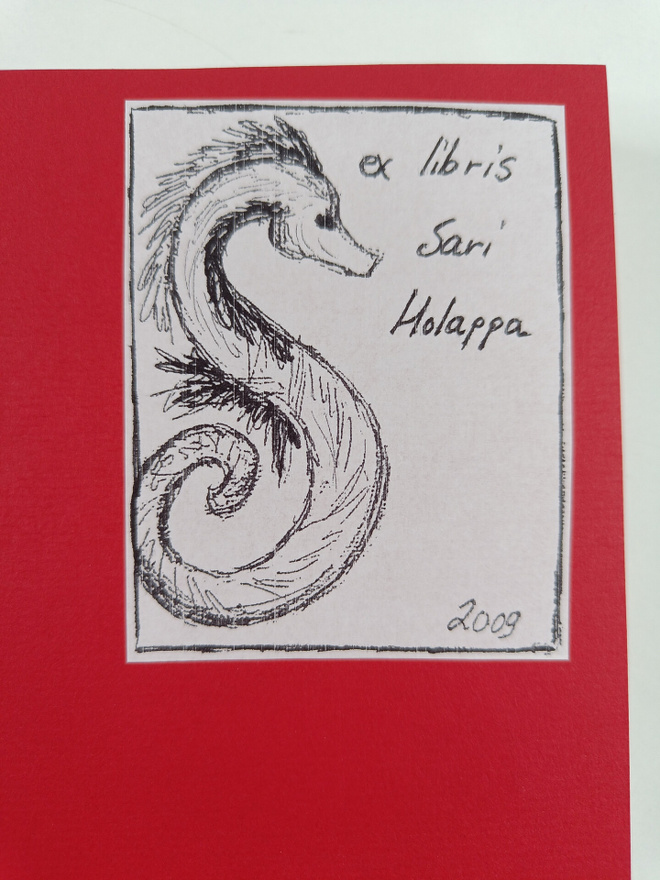 ex libris
Sari
Holappa
2009